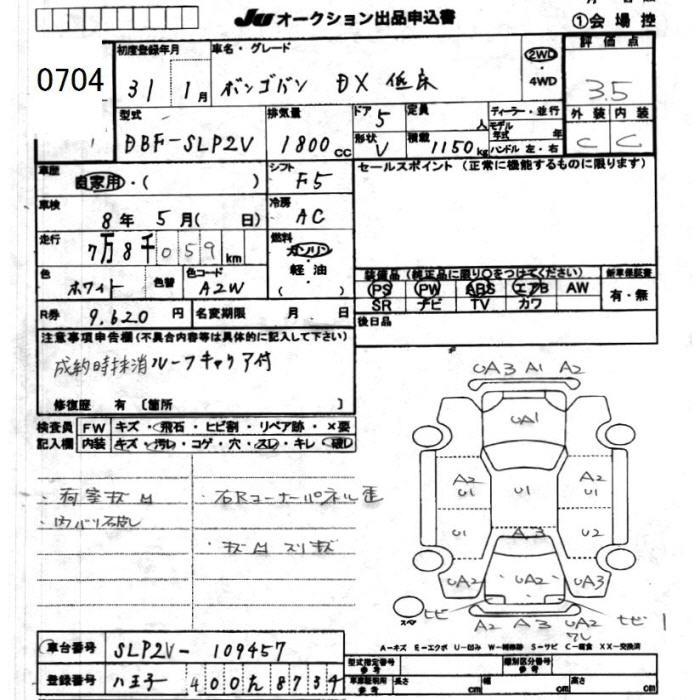 JU オークション出品申込書
①会場控
0704
初度登録年月
31 1月
車名・グレード
ボンゴバン DX 低床
2WD
・
4WD
評価点
3.5
外装 内装
C C
型式
DBF-SLP2V
排気量
1800cc
ドア
5
定員
人
形状
V
積載
1150kg
ディーラー・並行
モデル年式 年
ハンドル 左・右
車歴
自家用・( )
シフト
F5
セールスポイント (正常に機能するものに限ります)
車検
8年 5月( 日)
冷房
AC
走行
7万8千059km
燃料
ガソリン
軽油
( )
色
ホワイト
色替
色コード
A2W
装備品 (純正品に限り○をつけてください)
新車保証書
PS PW ABS エアB AW
有・無
SR ナビ TV カワ
R券
9,620円
名変期限
月 . 日
後日品
注意事項申告欄(不具合内容等は具体的に記入して下さい)
成約時抹消 ルーフキャリア付
修復歴 有 〔箇所 〕
検査員 FW キズ・飛石・ヒビ割・リペア跡・×要
記入欄 内装 キズ・汚レ・コゲ・穴・スレ・キレ・破レ
・荷室キズ凹
・内バリ破レ
・右Rコーナーパネル歪
・キズ凹スリキズ
UA3 A1 A2
UA1
A2
U1
U1
A2
U1
U1
U2
A3
UA2
UA2
UA3
スペ
ヒビ
A2 A3 UA2
ワレ
ヒビ 1
A-キズ E-エクボ U-凹み W-補修跡 S-サビ C-腐食 XX-交換済
車台番号
SLP2V-109457
登録番号
八王子 400 た 8734
型式指定番号
参考
類別区分番号
参考
車庫証明用
参考
長さ cm
幅 cm
高さ cm